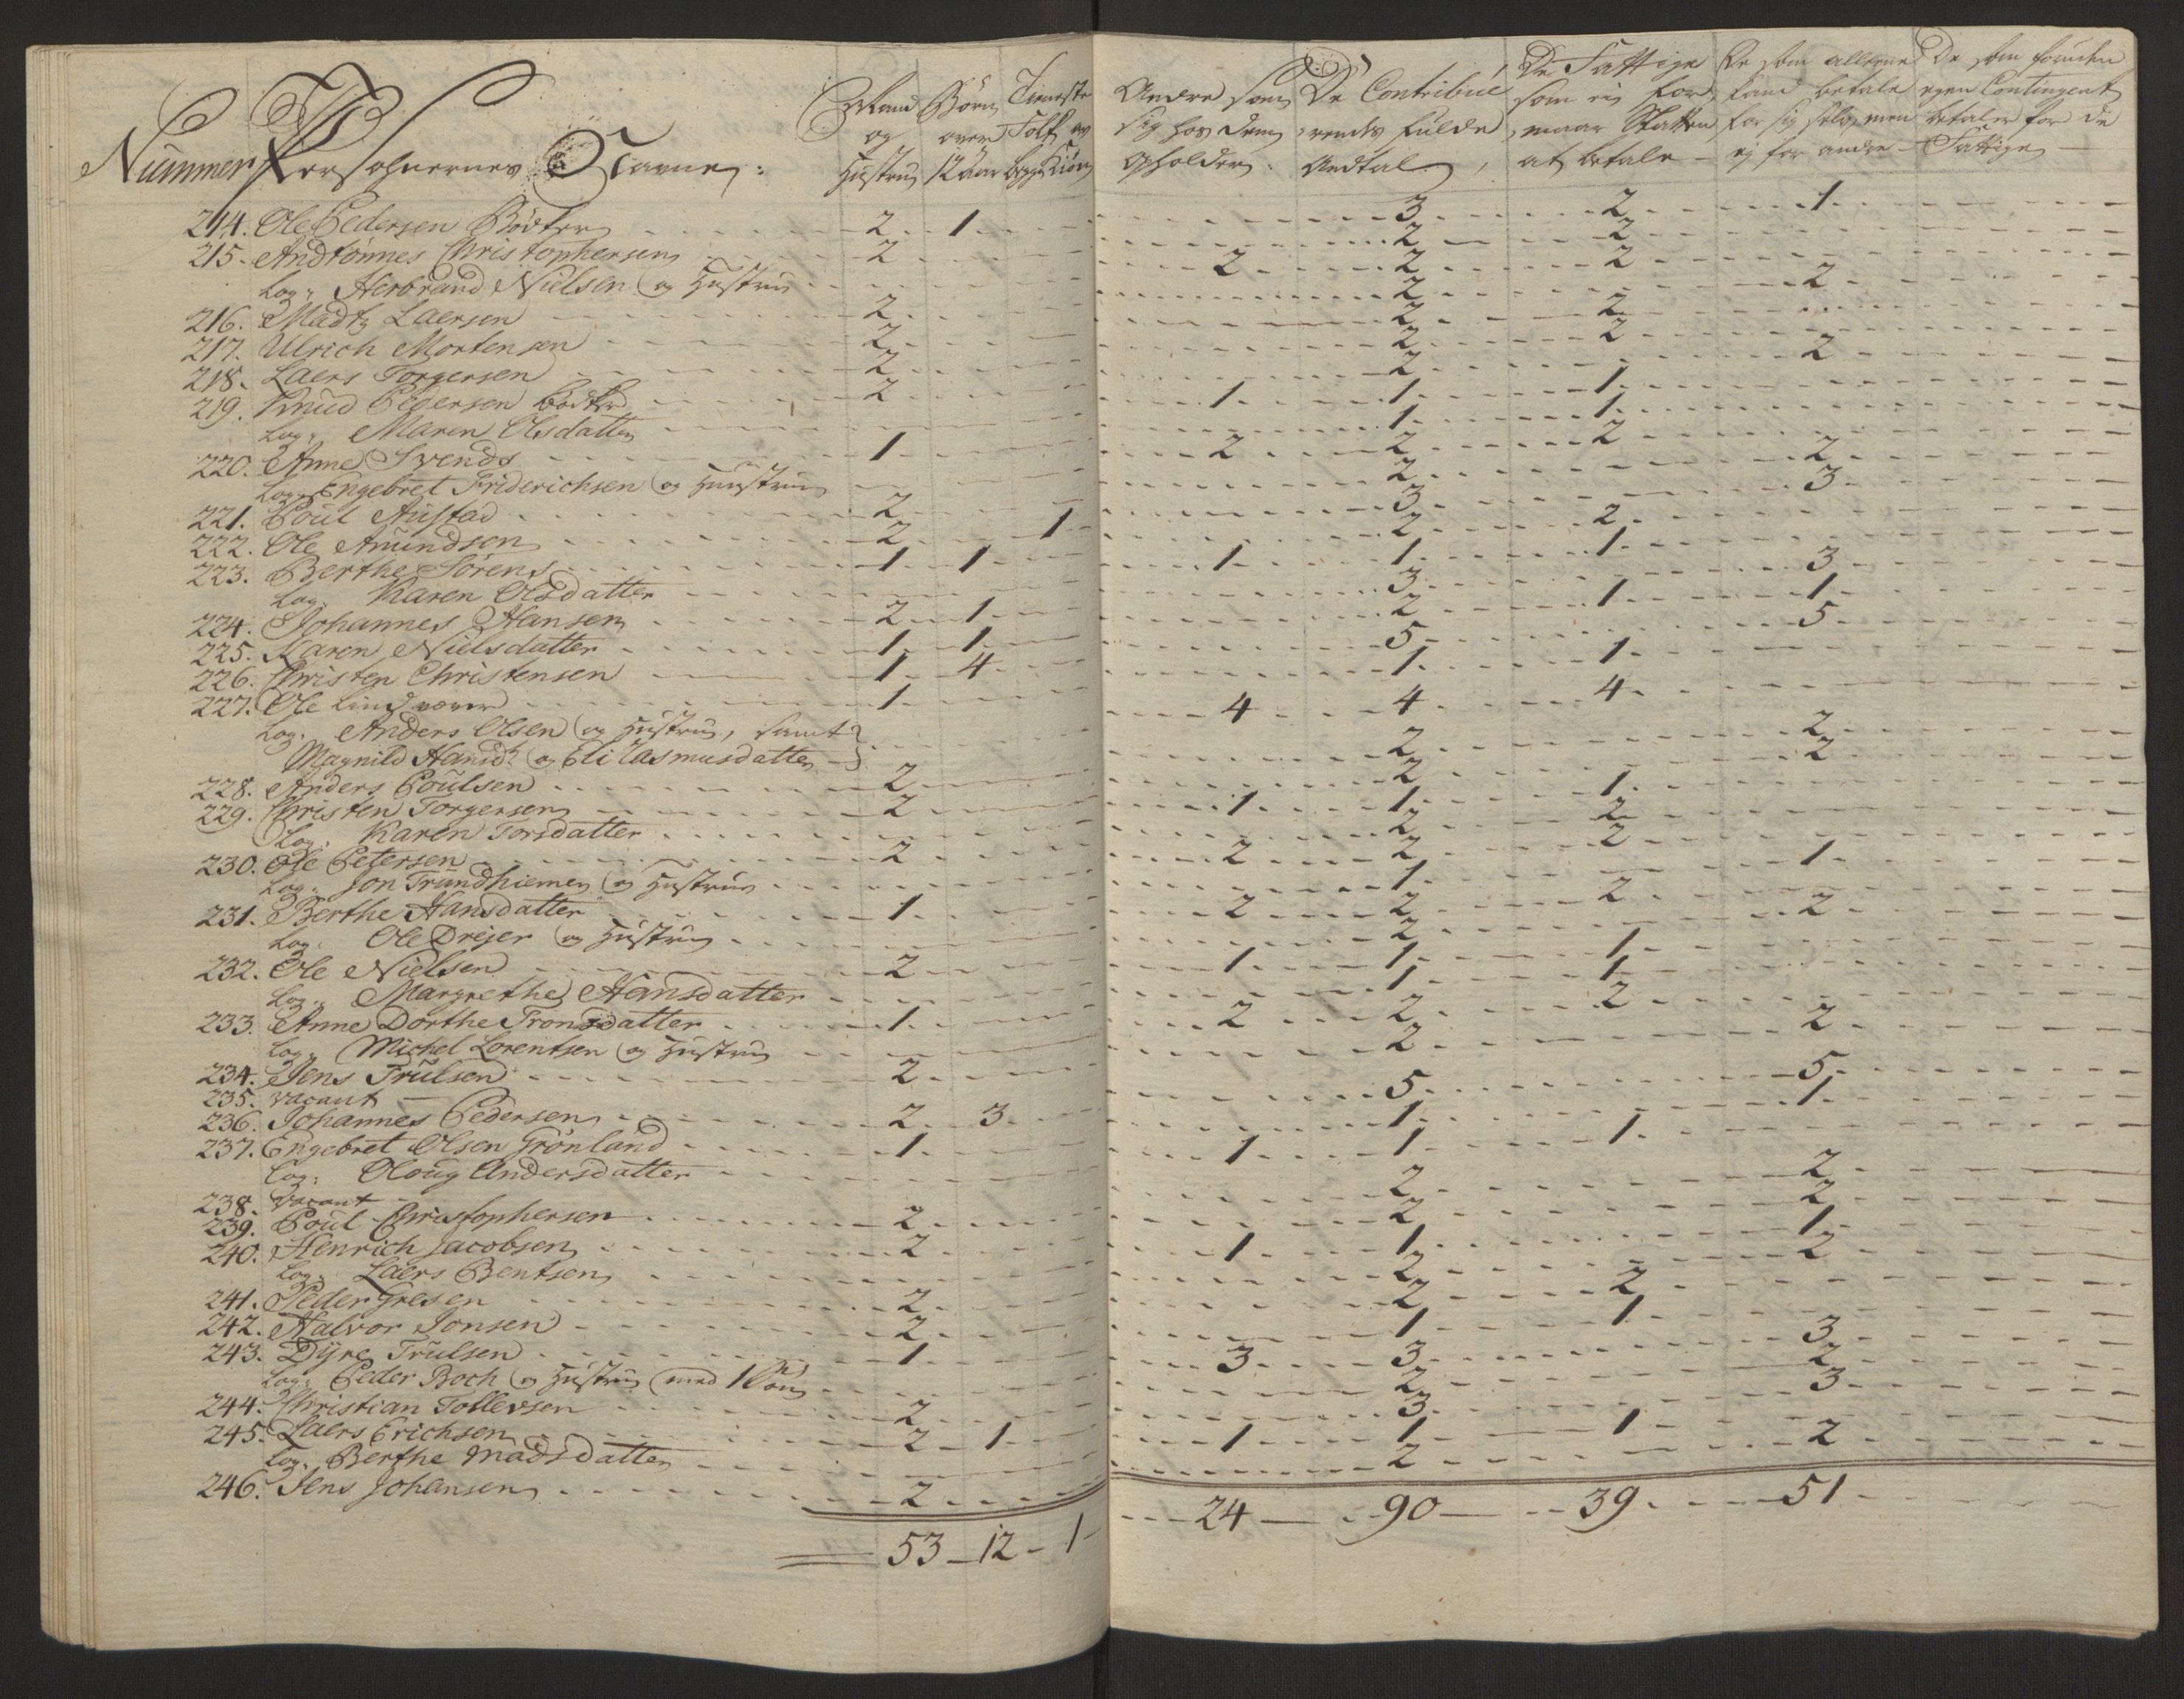 Nummer Personernes Navne:
Mand og Hustrue
Børn over 12 Aar
Tieneste Folk av begge Kiøn
Andre som sig hos dem opholder.
De Contribuerendes fulde Andtal
De Fattige som ei formaar Skatten at betale
De som alleene kand betale for sig selv, men ej for andre
De som foruden egen Contingent betaler for de Fattige
214. Ole Pedersen Bødker 2 1 3 2 1
215. Andtønnes Christophersen 2 2 2
Log: Herbrand Nielsen og Hustrue 2 2 2
216. Madtz Laersen 2 2 2
217. Ulrich Mortensen 2 2 2
218. Laers Torgersen 2 2 2
219. Knud Pedersen bødker 2 2 2
Log: Maren Olsdatter 1 1 1
220. Anne Svends 1 1 1
Log: Engebret Friderichsen og Huustrue 2 2 2
221. Poul Austad 2 2 2
222. Ole Amundsen 2 1 3 3
223. Berthe Sørens 1 1 2 2
Log: Karen Olsdatter 1 1 1
224. Johannes Hansen 2 1 3 3
225. Karen Nielsdatter 1 1 2 1 1
226. Christen Christensen 1 4 5 5
227. Ole Lindværer 1 1 1
Log: Anders Olsen og Hustrue, samt
Magnild Hansd: og Eli Rasmusdatter 4 4 4
228. Anders Poulsen 2 2 2
229. Christen Torgersen 2 2 2
Log: Karen Torsdatter 1 1 1
230. Ole Petersen 2 2 2
Log: Jon Trundhiemen og Hustrue 2 2 2
231. Berthe Hansdatter 1 1 1
Log: Ole Drejer og Hustrue 2 2 2
232. Ole Nielsen 2 2 2
Log: Margrethe Hansdatter 1 1 1
233. Anne Dorthe Tronsdatter 1 1 1
Log: Michel Lorentsen og Hustrue 2 2 2
234. Jens Trulsen 2 2 2
235. vacant
236. Johannes Pedersen 2 3 5 5
237. Engebret Olsen Grønland 1 1 1
Log: Oloug Andersdatter 1 1 1
238. vacant
239. Poul Christophersen 2 2 2
240. Henrich Jacobsen 2 2 2
Log: Laers Bentsen 1 1 1
241. Peder Gresen 2 2 2
242. Halvor Jonsen 2 2 2
243. Dyre Trulsen 1 1 1
Log: Peder Boch og Hustrue med 1 Søn 3 3 3
244. Christian Tollevsen 2 2 2
245. Laers Erichsen 2 1 3 3
Log: Berthe Madsdatter 1 1 1
246. Jens Johansen 2 2 2
53 12 1 24 90 39 51